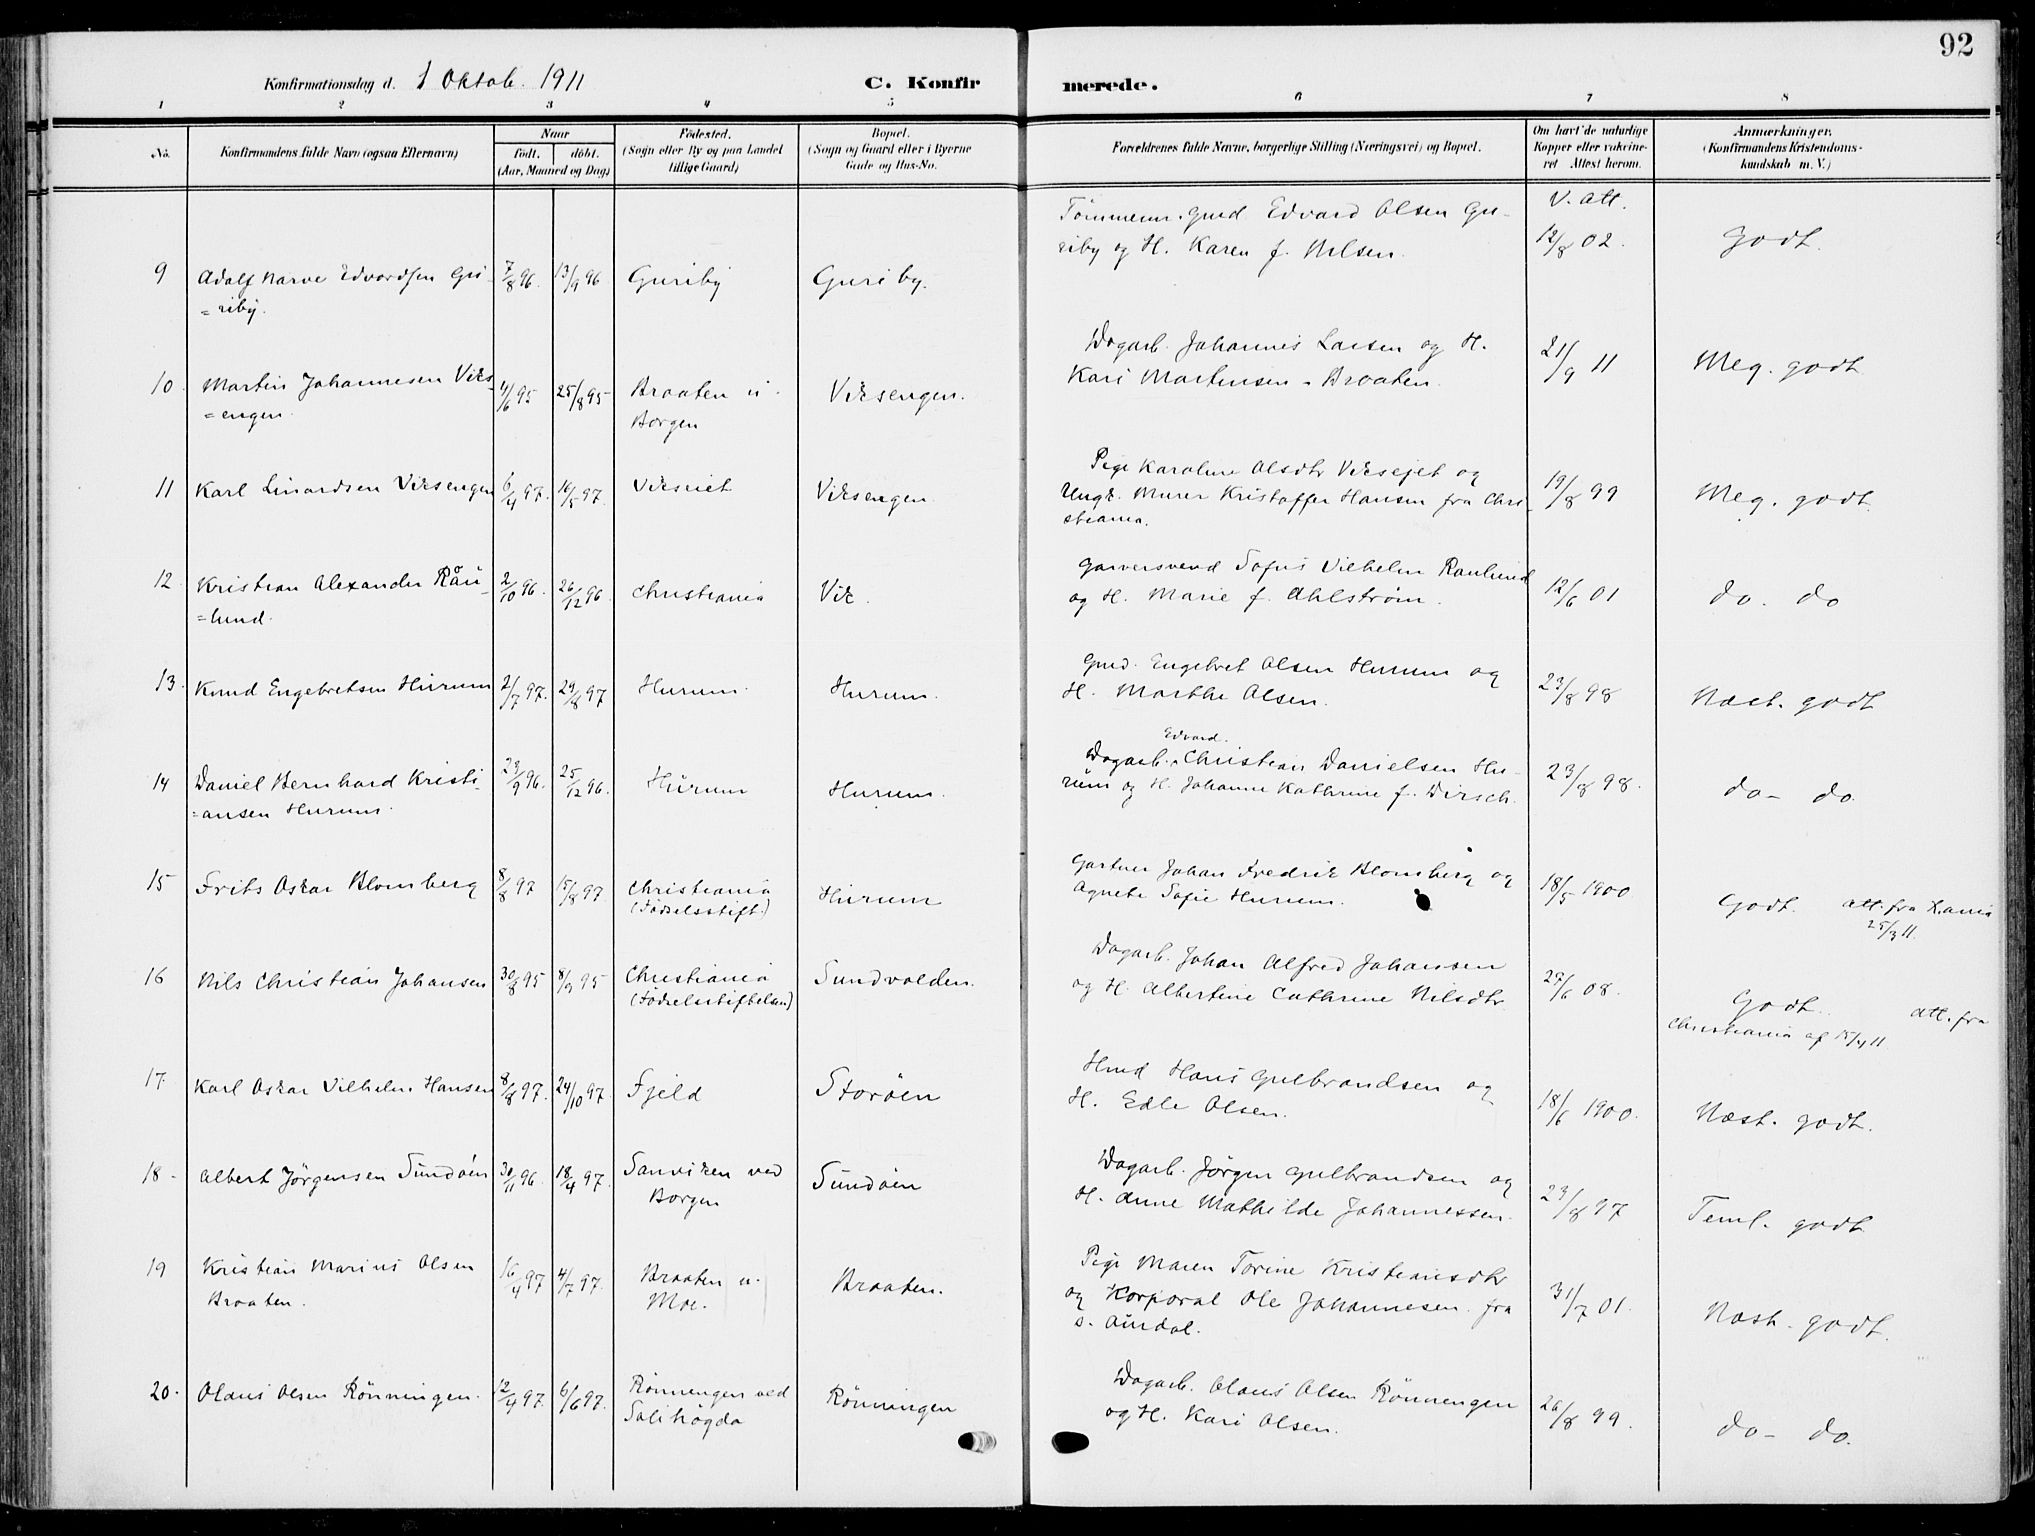 92
Konfirmationsdag d. 1 Oktob. 1911
C. Konfirmerede.
1 2 3 4 5 6 7 8
No.
Konfirmandens fulde Navn (ogsaa Efternavn)
Naar
født. døbt.
(Aar, Maaned og Dag)
Födested.
(Sogn eller By og paa Landet
tillige Gaard)
Bopæl.
(Sogn og Gaard eller i Byerne
Gade og Hus-No.
Forældrenes fulde Navne, borgerlige Stilling (Næringsvei) og Bopæl.
Om havt de naturlige
Kopper eller vakcine-
ret Attest herom.
Anmærkninger.
(Konfirmandens Kristendoms-
kundskab m. V.)
9 Adolf Narve Edvardsen Gu-
=riby.
7/8 96. 13/9 96 Guriby Guriby.
Tömmerm. Gmd. Edvard Olsen Gu-
riby og H. Karen f. Nilsen.
V. att.
12/8 02. Godt.
10. Martin Johannesen Viks-
=engen.
4/6 95 25/8 95 Braaten u.
Borgen
Viksengen.
Dagarb. Johannes Larsen og H.
Kari Martinsen - Braaten.
21/9 11 Meg. godt
11 Karl Linardsen Viksengen 6/4 97. 16/5 97. Viksriet Viksengen
Pige Karoline Olsdtr Viksejet og
Ungk. Murer Kristoffer Hansen fra Chri-
stiania.
19/8 99 Meg. godt.
12 Kristian Alexander Rau-
=lund.
2/10 96. 26/12 96. Christiania Vik.
Garversvend Sofus Vilhelm Raulund
og H. Marie f. Ahlström.
12/6 01 do. do
13. Knud Engebretsen Hurum 2/7 97. 29/8 97 Hurum. Hurum.
Gmd. Engebret Olsen Hurum og
H. Marthe Olsen.
23/8 98 Næst. godt
14 Daniel Bernhard Kristi-
=ansen Hurum.
23/9 96. 25/12 96. Hurum Hurum.
Edvard.
Dagarb. Christian Danielsen Hu-
rum og H. Johanne Kathrine f. Dirsch.
23/8 98. do - do.
15 Frits Oskar Blomberg 8/8 97 15/8 97. Christiania
(Födselsstift.)
Hurum
Gartner Johan Fredrik Blomberg og
Agnete Sofie Hurum.
18/5 1900 Godt. att. fra K.ania
25/3 11.
16 Nils Christian Johansen 30/8 95 8/9 95 Christiania
(Födselsstiftelsen)
Sundvolden.
Dagarb. Johan Alfred Johansen
og H. Albertine Cathrine Nilsdtr
27/6 08. Godt. att. fra
Christiania af 15/4 11
17. Karl Oskar Vilhelm Hansen 8/8 97. 24/10 97. Fjeld Storöen
Hmd Hans Gulbrandsen og
H. Edle Olsen.
18/6 1900. Næst. godt.
18 - Albert Jørgensen Sundöen 30/11 96. 18/4 97. Sanviken ved
Borgen
Sundöen
Dagarb. Jörgen Gulbrandsen og
H. Anne Mathilde Johannessen.
23/8 97 Teml. godt
19 Kristian Marius Olsen
Braaten.
16/4 97 4/7 97. Braaten u.
Moe.
Braaten.
Pige Maren Torine Kristiansdtr
og Korporal Ole Johannesen fra
S. Aurdal.
31/7 01. Næst. godt.
20. Olaus Olsen Rönningen. 12/4 97. 6/6 97. Rönnengen ved
Solihögda
Rönningen
Dagarb. Olaus Olsen Rönnengen
og H. Kari Olsen.
26/8 99. do - do.